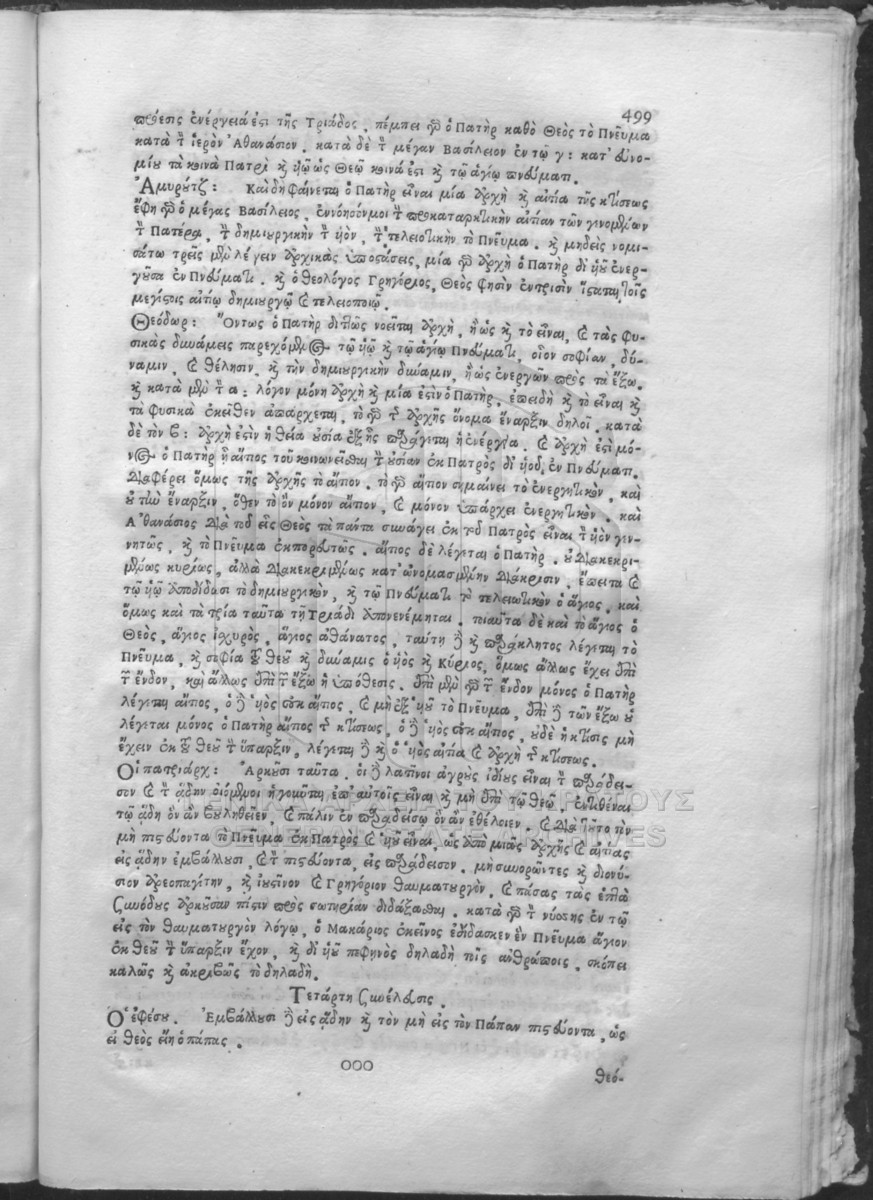 499
πόθεσις ἐνέργειά ἐστι τῆς Τριάδος. πέμπει γὰρ ὁ Πατὴρ καθὸ Θεὸς τὸ Πνεῦμα
κατὰ τὸν ἱερὸν Ἀθανάσιον. κατὰ δὲ τὸν μέγαν Βασίλειον ἐν τῷ γ: κατ' εὐνο-
μίου τὰ κοινὰ Πατρὶ καὶ υἱῷ ὡς Θεῷ κοινά ἐστι καὶ τῷ ἁγίῳ πνεύματι.
Ἀμυρούτζ: Καὶ δὴ φαίνεται ὁ Πατὴρ εἶναι μία ἀρχὴ καὶ αἰτία τῆς κτίσεως
ἔφη γὰρ ὁ μέγας Βασίλειος, ἐννόησόν μοι τὴν προκαταρκτικὴν αἰτίαν τῶν γινομένων
τὸν Πατέρα, τὴν δημιουργικὴν τὸν υἱόν, τὴν τελειοτικὴν τὸ Πνεῦμα. καὶ μηδεὶς νομι-
σάτω τρεῖς με λέγειν ἀρχικὰς ὑποστάσεις, μία γὰρ ἀρχὴ ὁ Πατὴρ δι' υἱοῦ ἐνερ-
γοῦσα ἐν Πνεύματι. καὶ ὁ θεολόγος Γρηγόριος, Θεὸς φησὶν ἐν τρισὶν ἵσταται τοῖς
μεγίστοις αἰτίῳ δημιουργῷ καὶ τελειοποιῷ.
Θεόδωρ: Ὄντως ὁ Πατὴρ διττῶς νοεῖται ἀρχὴ, ἢ ὡς καὶ τὸ εἶναι, καὶ τὰς φυ-
σικὰς δυνάμεις παρεχόμενος τῷ υἱῷ καὶ τῷ ἁγίῳ Πνεύματι, οἷον σοφίαν, δύ-
ναμιν, καὶ θέλησιν, καὶ τὴν δημιουργικὴν δύναμιν, ἢ ὡς ἐνεργῶν πρὸς τὰ ἔξω.
καὶ κατὰ μὲν τὸν α: λόγον μόνη ἀρχὴ καὶ μία ἐστὶν ὁ Πατὴρ, ἐπειδὴ καὶ τὸ εἶναι καὶ
τὰ φυσικὰ ἐκεῖθεν ἀπάρχεται, τὸ γὰρ τῆς ἀρχῆς ὄνομα ἔναρξιν δηλοῖ. κατὰ
δὲ τὸν β: ἀρχὴ ἐστὶν ἡ θεία οὐσία ἐξ ἧς προάγεται ἡ ἐνέργεια. καὶ ἀρχὴ ἐστὶ μό-
νος ὁ Πατὴρ ἢ αἴτιος τοῦ κοινωνεῖσθαι τὴν οὐσίαν ἐκ Πατρὸς δι' υἱοῦ, ἐν Πνεύματι.
Διαφέρει ὅμως τῆς ἀρχῆς τὸ αἴτιον. τὸ γὰρ αἴτιον σημαίνει τὸ ἐνεργητικὸν, καὶ
οὐ τὴν ἔναρξιν, ὅθεν τὸ ὂν μόνον αἴτιον, καὶ μόνον ὑπάρχει ἐνεργητικόν. καὶ
Ἀθανάσιος διὰ τοῦ εἷς Θεὸς τὰ πάντα συνάγει ἐκ τοῦ Πατρὸς εἶναι τὸν υἱὸν γεν-
νητῶς, καὶ τὸ Πνεῦμα ἐκπορευτῶς. αἴτιος δὲ λέγεται ὁ Πατὴρ. οὐ διακεκρι-
μένως κυρίως, ἀλλὰ διακεκριμένως κατ' ὀνομασμένην διάκρισιν. ἔπειτα καὶ
τῷ υἱῷ ἀποδίδωσι τὸ δημιουργικὸν, καὶ τῷ Πνεύματι τὸ τελειωτικὸν ὁ ἅγιος. καὶ
ὅμως καὶ τὰ τρία ταῦτα τῇ Τριάδι ἀπονενέμηται. τοιαῦτα δὲ καὶ τὸ ἅγιος ὁ
Θεὸς, ἅγιος ἰχυρὸς, ἅγιος ἀθάνατος, ταύτῃ δὲ καὶ παράκλητος λέγεται τὸ
Πνεῦμα, καὶ σοφία τοῦ θεοῦ καὶ δύναμις ὁ υἱὸς καὶ Κύριος, ὅμως ἄλλως ἔχει ἐπὶ
τῶν ἔνδον, καὶ ἄλλως ἐπὶ τῶν ἔξω ἡ ὑπόθεσις. ἐπὶ μὲν γὰρ τῶν ἔνδον μόνος ὁ Πατὴρ
λέγεται αἴτιος, ὁ δὲ υἱὸς οὐκ αἴτιος, καὶ μὴ ἐξ υἱοῦ τὸ Πνεῦμα, ἐπὶ δὲ τῶν ἔξω οὐ
λέγεται μόνος ὁ Πατὴρ αἴτιος τῆς κτίσεως, ὁ δὲ υἱὸς οὐκ αἴτιος, οὐδὲ ἡ κτίσις μὴ
ἔχειν ἐκ τοῦ θεοῦ τὴν ὕπαρξιν, λέγεται δὲ καὶ ὁ υἱὸς αἰτία καὶ ἀρχὴ τῆς κτίσεως.
Οἱ πατριάρχ: Ἀρκοῦσι ταῦτα. οἱ δὲ λατῖνοι ἀγροὺς ἰδίους εἶναι τὸν παράδει-
σον καὶ τὸν ᾅδην οἰόμενοι ἡγοῦνται ἐπ' αὐτοῖς εἶναι καὶ μὴ ἐπὶ τῷ θεῷ, ἐντιθέναι
τῷ ᾅδῃ ὃν ἂν βουληθεῖεν, καὶ πάλιν ἐν παραδείσῳ ὃν ἂν ἐθέλοιεν. καὶ διὰ τοῦτο τὸν
μὴ πιστεύοντα τὸ Πνεῦμα ἐκ Πατρὸς καὶ υἱοῦ εἶναι, ὡς ἀπὸ μιᾶς ἀρχῆς καὶ αἰτίας
εἰς ᾅδην ἐμβάλλουσι, καὶ τὸν πιστεύοντα, εἰς παράδεισον. μὴ συνορῶντες καὶ διονύ-
σιον ἀρεοπαγίτην, καὶ ἰουστῖνον καὶ Γρηγόριον θαυματουργὸν. καὶ πάσας τὰς ἑπτὰ
Συνόδους ἀρκοῦσαν πίστιν πρὸς σωτηρίαν διδάξασθαι. κατὰ γὰρ τὸν νύσσης ἐν τῷ
εἰς τὸν θαυματουργὸν λόγῳ, ὁ Μακάριος ἐκεῖνος ἐδίδασκεν ἓν Πνεῦμα ἅγιον
ἐκ θεοῦ τὴν ὕπαρξιν ἔχον, καὶ δι' υἱοῦ πεφηνὸς δηλαδὴ τοῖς ἀνθρώποις. σκόπει
καλῶς καὶ ἀκριβῶς τὸ δηλαδὴ.
Τετάρτη Συνέλευσις.
Ὁ ἐφέσου. Ἐμβάλλουσι δὲ εἰς ᾅδην καὶ τὸν μὴ εἰς τὸν Πάπαν πιστεύοντα, ὡς
εἰ θεὸς εἴη ὁ πάπας.
ooo
θεό-